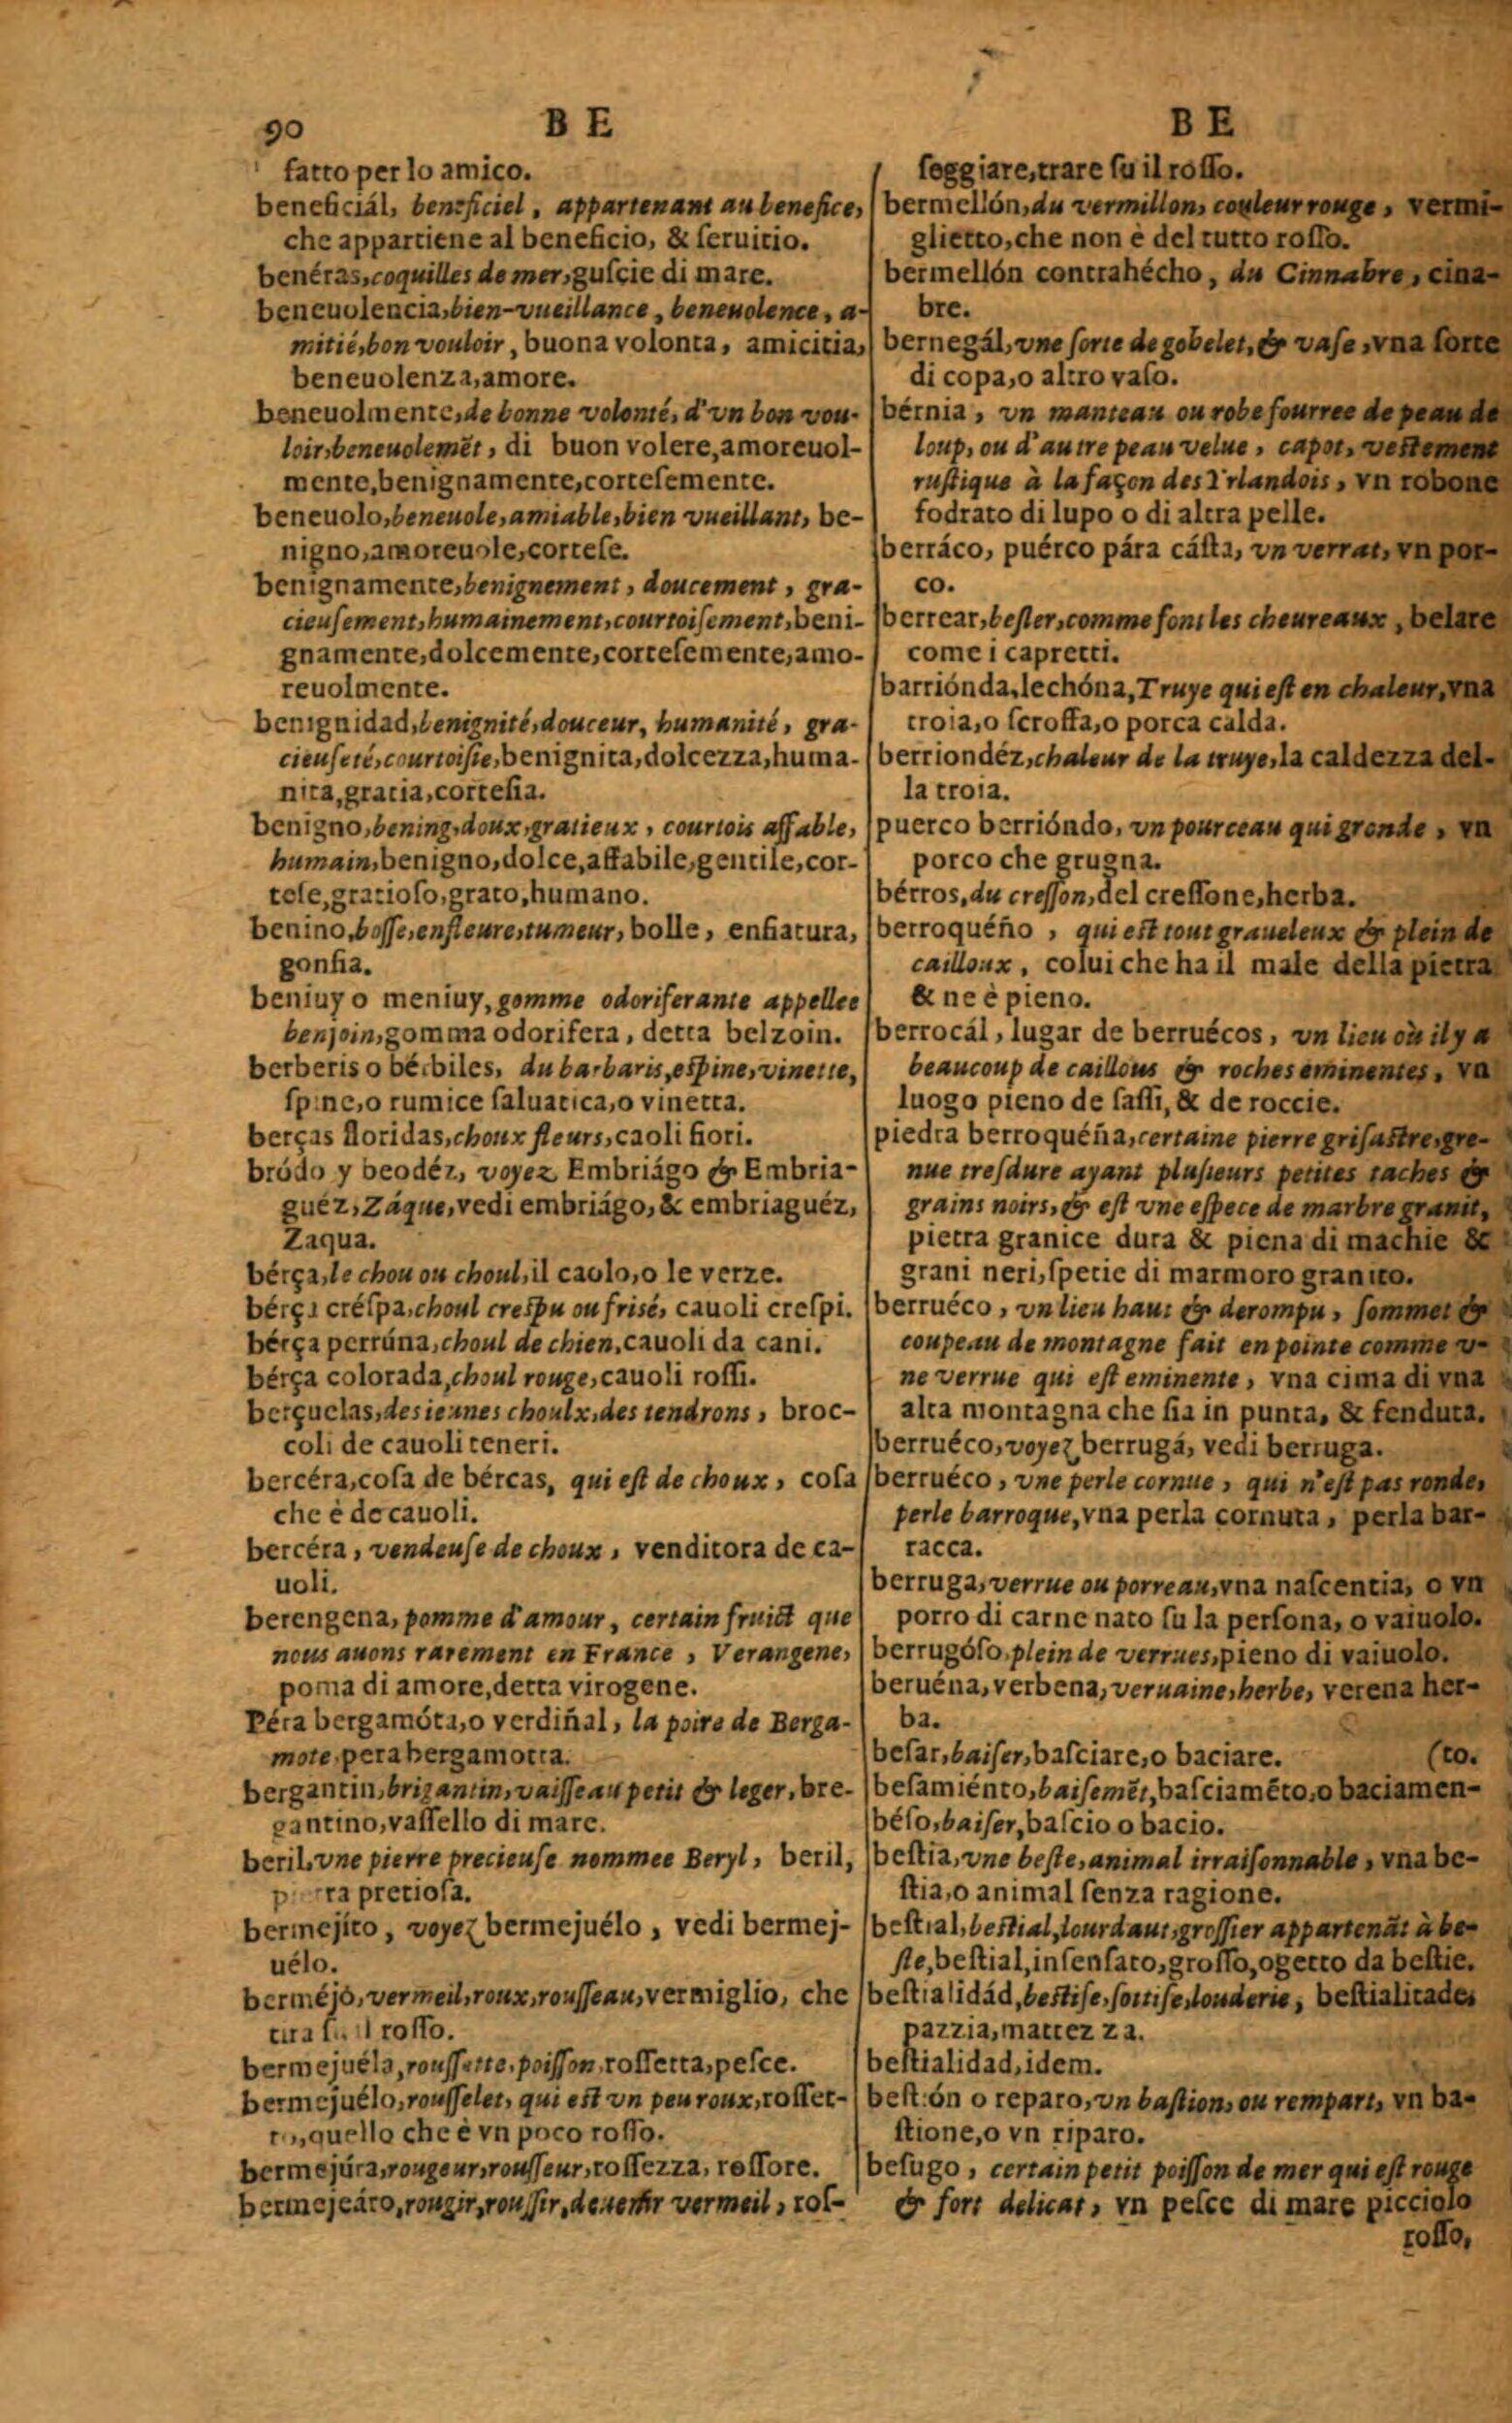 90
B E
fatto per lo amico.
beneficiál, beneficiel, appartenant au benefice,
che appartiene al beneficio, & ſeruitio.
benéras, coquilles de mer, guſcie di mare.
beneuolencia, bien-vueillance, beneuolence, a-
mitié, bon vouloir, buona volonta, amicitia,
beneuolenza, amore.
beneuolmente, de bonne volonté, d'vn bon vou-
loir, beneuolemẽt, di buon volere, amoreuol-
mente, benignamente, corteſemente.
beneuolo, beneuole, amiable, bien vueillant, be-
nigno, amoreuole, corteſe.
benignamente, benignement, doucement, gra-
cieuſement, humainement, courtoiſement, beni-
gnamente, dolcemente, corteſemente, amo-
reuolmente.
benignidad, benignité, douceur, humanité, gra-
cieuſeté, courtoiſie, benignita, dolcezza, huma-
nita, gratia, corteſia.
benigno, bening, doux, gratieux, courtois affable,
humain, benigno, dolce, affabile, gentile, cor-
teſe, gratioſo, grato, humano.
benino, boſſe, enfleure, tumeur, bolle, enfiatura,
gonfia.
beniuy o meniuy, gomme odoriferante appellee
benjoin, gomma odorifera, detta belzoin.
berberis o bérbiles, du barbaris, eſpine, vinette,
ſpine, o rumice ſaluatica, o vinetta.
berças floridas, choux fleurs, caoli fiori.
bródo y beodéz, voyez Embriágo & Embria-
guéz, Záque, vedi embriágo, & embriaguéz,
Zaqua.
bérça, le chou ou choul, il caolo, o le verze.
bérça créſpa, choul creſpu ou friſé, cauoli creſpi.
bérça perrúna, choul de chien, cauoli da cani.
bérça colorada, choul rouge, cauoli roſſi.
berçuelas, des ieunes choulx, des tendrons, broc-
coli de cauoli teneri.
bercéra, coſa de bércas, qui eſt de choux, coſa
che è de cauoli.
bercéra, vendeuſe de choux, venditora de ca-
uoli.
berengena, pomme d'amour, certain fruict que
nous auons rarement en France, Verangene,
poma di amore, detta virogene.
Péra bergamóta, o verdiñal, la poire de Berga-
mote, pera bergamotta.
bergantin, brigantin, vaiſſeau petit & leger, bre-
gantino, vaſſello di mare.
beril, vne pierre precieuſe nommee Beryl, beril,
ra pretioſa.
bermejito, voyez bermejuélo, vedi bermej-
uélo.
berméjo, vermeil, roux, rouſſeau, vermiglio, che
tira il roſſo.
bermejuéla, rouſſette, poiſſon, roſſetta, peſce.
bermejuélo, rouſſelet, qui eſt vn peu roux, roſſet-
to, quello che è vn poco roſſo.
bermejúra, rougeur, rouſſeur, roſſezza, roſſore.
bermejeáro, rougir, rouſſir, deuenir vermeil, roſ-
B E
ſeggiare, trare ſu il roſſo.
bermellón, du vermillon, couleur rouge, vermi-
glietto, che non è del tutto roſſo.
bermellón contrahécho, du Cinnabre, cina-
bre.
bernegál, vne ſorte de gobelet, & vaſe, vna ſorte
di copa, o altro vaſo.
bérnia, vn manteau ou robe fourree de peau de
loup, ou d'autre peau velue, capot, veſtement
ruſtique à la façon des Yrlandois, vn robone
fodrato di lupo o di altra pelle.
berráco, puérco pára cáſta, vn verrat, vn por-
co.
berrear, beſler, comme font les cheureaux, belare
come i capretti.
barriónda, lechóna, Truye qui eſt en chaleur, vna
troia, o ſcroffa, o porca calda.
berriondéz, chaleur de la truye, la caldezza del-
la troia.
puerco berrióndo, vn pourceau qui gronde, vn
porco che grugna.
bérros, du creſſon, del creſſone, herba.
berroquéño, qui eſt tout graueleux & plein de
cailloux, colui che ha il male della pietra
& ne è pieno.
berrocál, lugar de berruécos, vn lieu où il y a
beaucoup de caillous & roches eminentes, vn
luogo pieno de ſaſſi, & de roccie.
piedra berroquéña, certaine pierre griſaſtre, gre-
nue treſdure ayant pluſieurs petites taches &
grains noirs, & eſt vne eſpece de marbre granit,
pietra granice dura & piena di machie &
grani neri, ſpetie di marmoro granito.
berruéco, vn lieu haut & derompu, ſommet &
coupeau de montagne fait en pointe comme v-
ne verrue qui eſt eminente, vna cima di vna
alta montagna che ſia in punta, & fenduta.
berruéco, voyez berrugá, vedi berruga.
berruéco, vne perle cornue, qui n'eſt pas ronde,
perle barroque, vna perla cornuta, perla bar-
racca.
berruga, verrue ou porreau, vna naſcentia, o vn
porro di carne nato ſu la perſona, o vaiuolo.
berrugóſo, plein de verrues, pieno di vaiuolo.
beruéna, verbena, veruaine, herbe, verena her-
ba.
beſar, baiſer, baſciare, o baciare. (to.
beſamiénto, baiſemẽt, baſciamẽto, o baciamen-
béſo, baiſer, baſcio o bacio.
beſtia, vne beſte, animal irraiſonnable, vna be-
ſtia, o animal ſenza ragione.
beſtial, beſtial, lourdaut, groſſier appartenãt à be-
ſte, beſtial, inſenſato, groſſo, ogetto da beſtie.
beſtialidád, beſtiſe, ſottiſe, louderie, beſtialitade,
pazzia, mattezza.
beſtialidad, idem.
beſtión o reparo, vn baſtion, ou rempart, vn ba-
ſtione, o vn riparo.
beſugo, certain petit poiſſon de mer qui eſt rouge
& fort delicat, vn peſce di mare picciolo
roſſo,